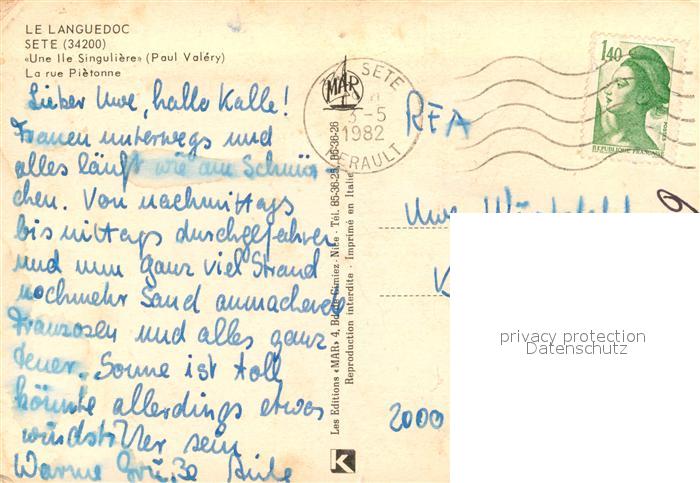 LE LANGUEDOC
SETE (34200)
«Une Ile Singulière» (Paul Valéry)
La rue Piètonne
Lieber Uwe, hallo Kalle!
Frauen unterwegs und
alles läuft wie am Schnür
chen. Von nachmittags
bis mittags durchgefahren
und nun ganz viel Strand
nochmehr Sand anmachende
Franzosen und alles ganz
teuer. Sonne ist toll
könnte allerdings etwas
windstiller sein
Warme Grüße
MAR
SETE
3-5
1982
HERAULT
1,40
POSTES
REPUBLIQUE FRANÇAISE
RFA
Uwe
2000
9
Les Editions «MAR» 4, Bd de Cimiez - Nice - Tél. 85-36-28, 85-36-26
Reproduction interdite - Imprimé en Italie
K
privacy protection
Datenschutz